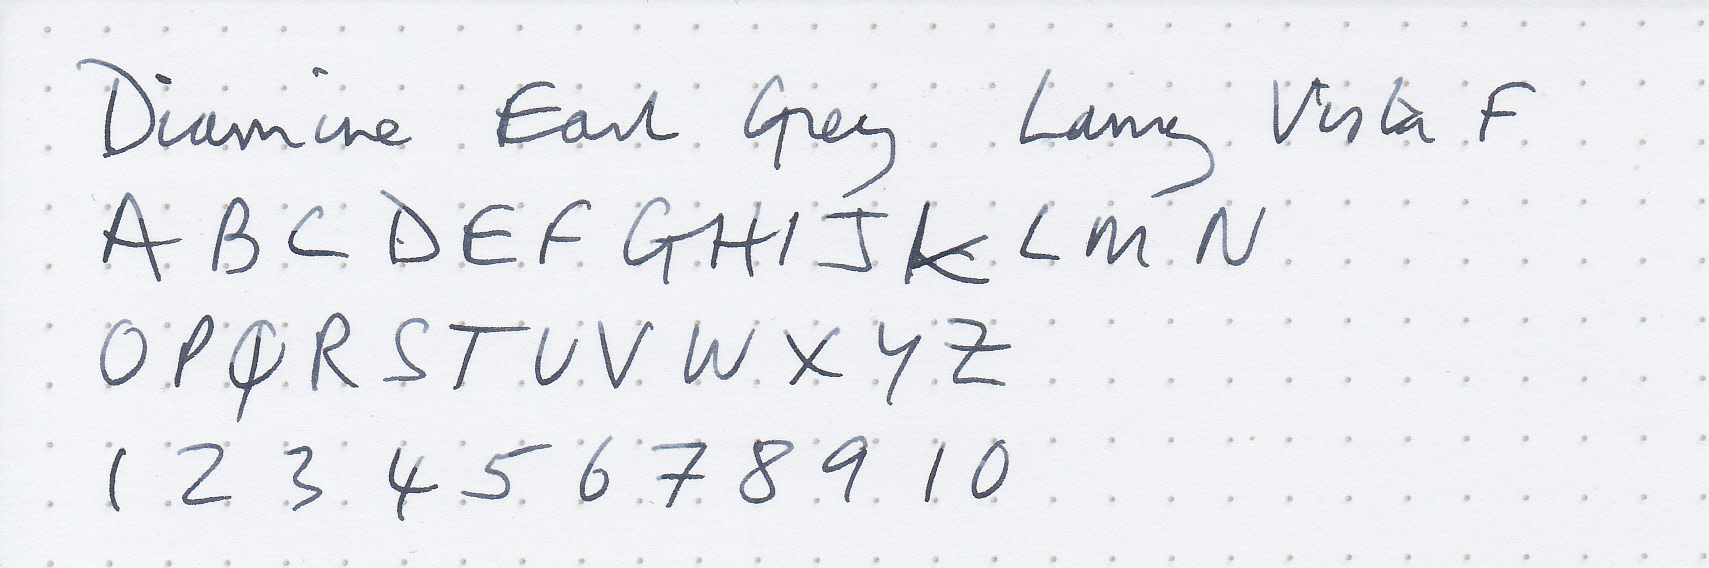 Diamine Earl Grey Lamy Vista F
A B C D E F G H I J K L M N
O P Q R S T U V W X Y Z
1 2 3 4 5 6 7 8 9 10